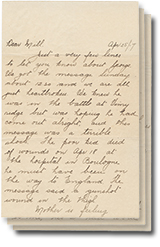 Dear Mill Apr 25/17
Just a very few lines
to let you know about George
We got the message Sunday
about 12:00 and we are all
just heartbroken. We knew he
was in the battle at Vimy
ridge but was hoping he had
come out alright but the
message was a terrible
shock. The poor kid died
of wounds on Apr 18 at
the hospital in Boulogne
He must have been on
the way to England. The
message said a gunshot
wound in the thigh
Mother is feeling